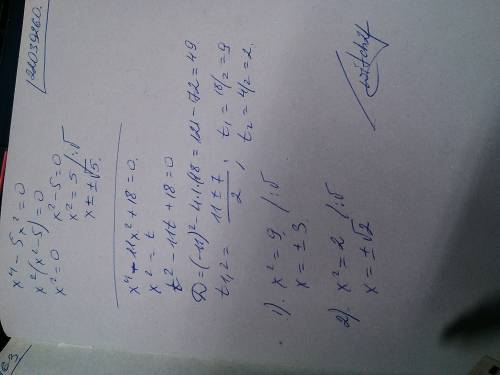 22039260.
x⁴ - 5x² = 0
x²(x² - 5) = 0
x² = 0 x² - 5 = 0
x² = 5 /:√
x ± ±√5.
x⁴ - 11x² + 18 = 0.
x² = t
t² - 11t + 18 = 0
D = (-11)² - 4·1·18 = 121 - 72 = 49
t₁,₂ = (11 ± 7)/2 ; t₁ = 18/2 = 9
, t₂ = 4/2 = 2.
1). x² = 9 /:√
x = ± 3.
2). x² = 2 /:√
x = ±√2